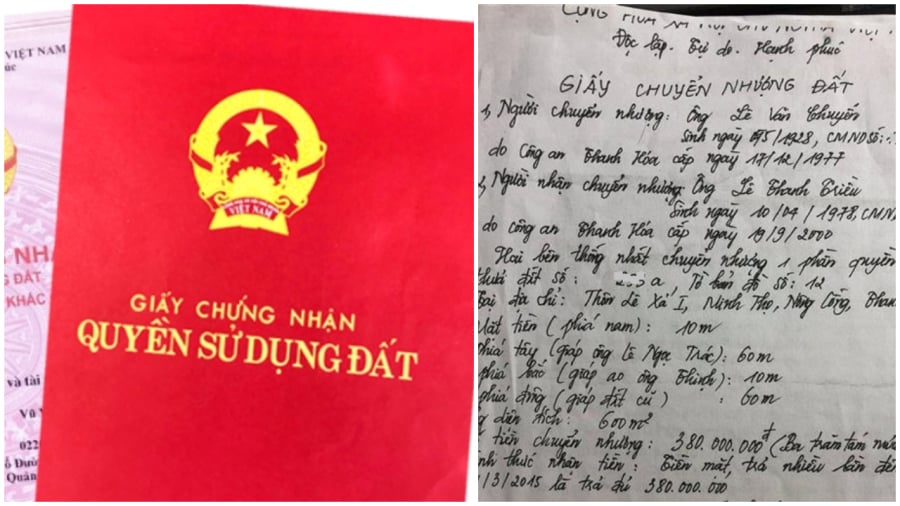 VIỆT NAM
NH
G ĐẤT
KHÁC
và tài
Vũ V
022
Quân
VIỆT NAM
GIẤY CHỨNG NHẬN
QUYỀN SỬ DỤNG ĐẤT
Độc lập. Tự do. Hạnh phúc
GIẤY CHUYỂN NHƯỢNG ĐẤT
1, Người chuyển nhượng: Ông Lê Văn Chuyến
Sinh ngày /1928, CMND số:
do Công an Thanh Hóa cấp ngày 17/12/1977
2, Người nhận chuyển nhượng Ông Lê Thanh Triều
Sinh ngày 10/04/1978, CMN
do công an Thanh Hóa cấp ngày 19/9/2000
Hai bên thống nhất chuyển nhượng 1 phần quyền
thửa đất số: a, Tờ bản đồ số: 12
Tại địa chỉ: Thôn Lê Xá I, Minh Thọ, Nông Cống, Than
Mặt tiền (phía nam): 10m
phía tây (giáp ông Lê Ngọc Trác): 60m
phía bắc (giáp ao ông Thinh): 10m
phía đông (giáp đất cũ) : 60m
g diện tích: 600m²
tiền chuyển nhượng: 380.000.000đ (Ba trăm tám mươ
nh thức nhận tiền: Tiền mặt, trả nhiều lần đến
/3/2015 là trả đủ 380.000.000